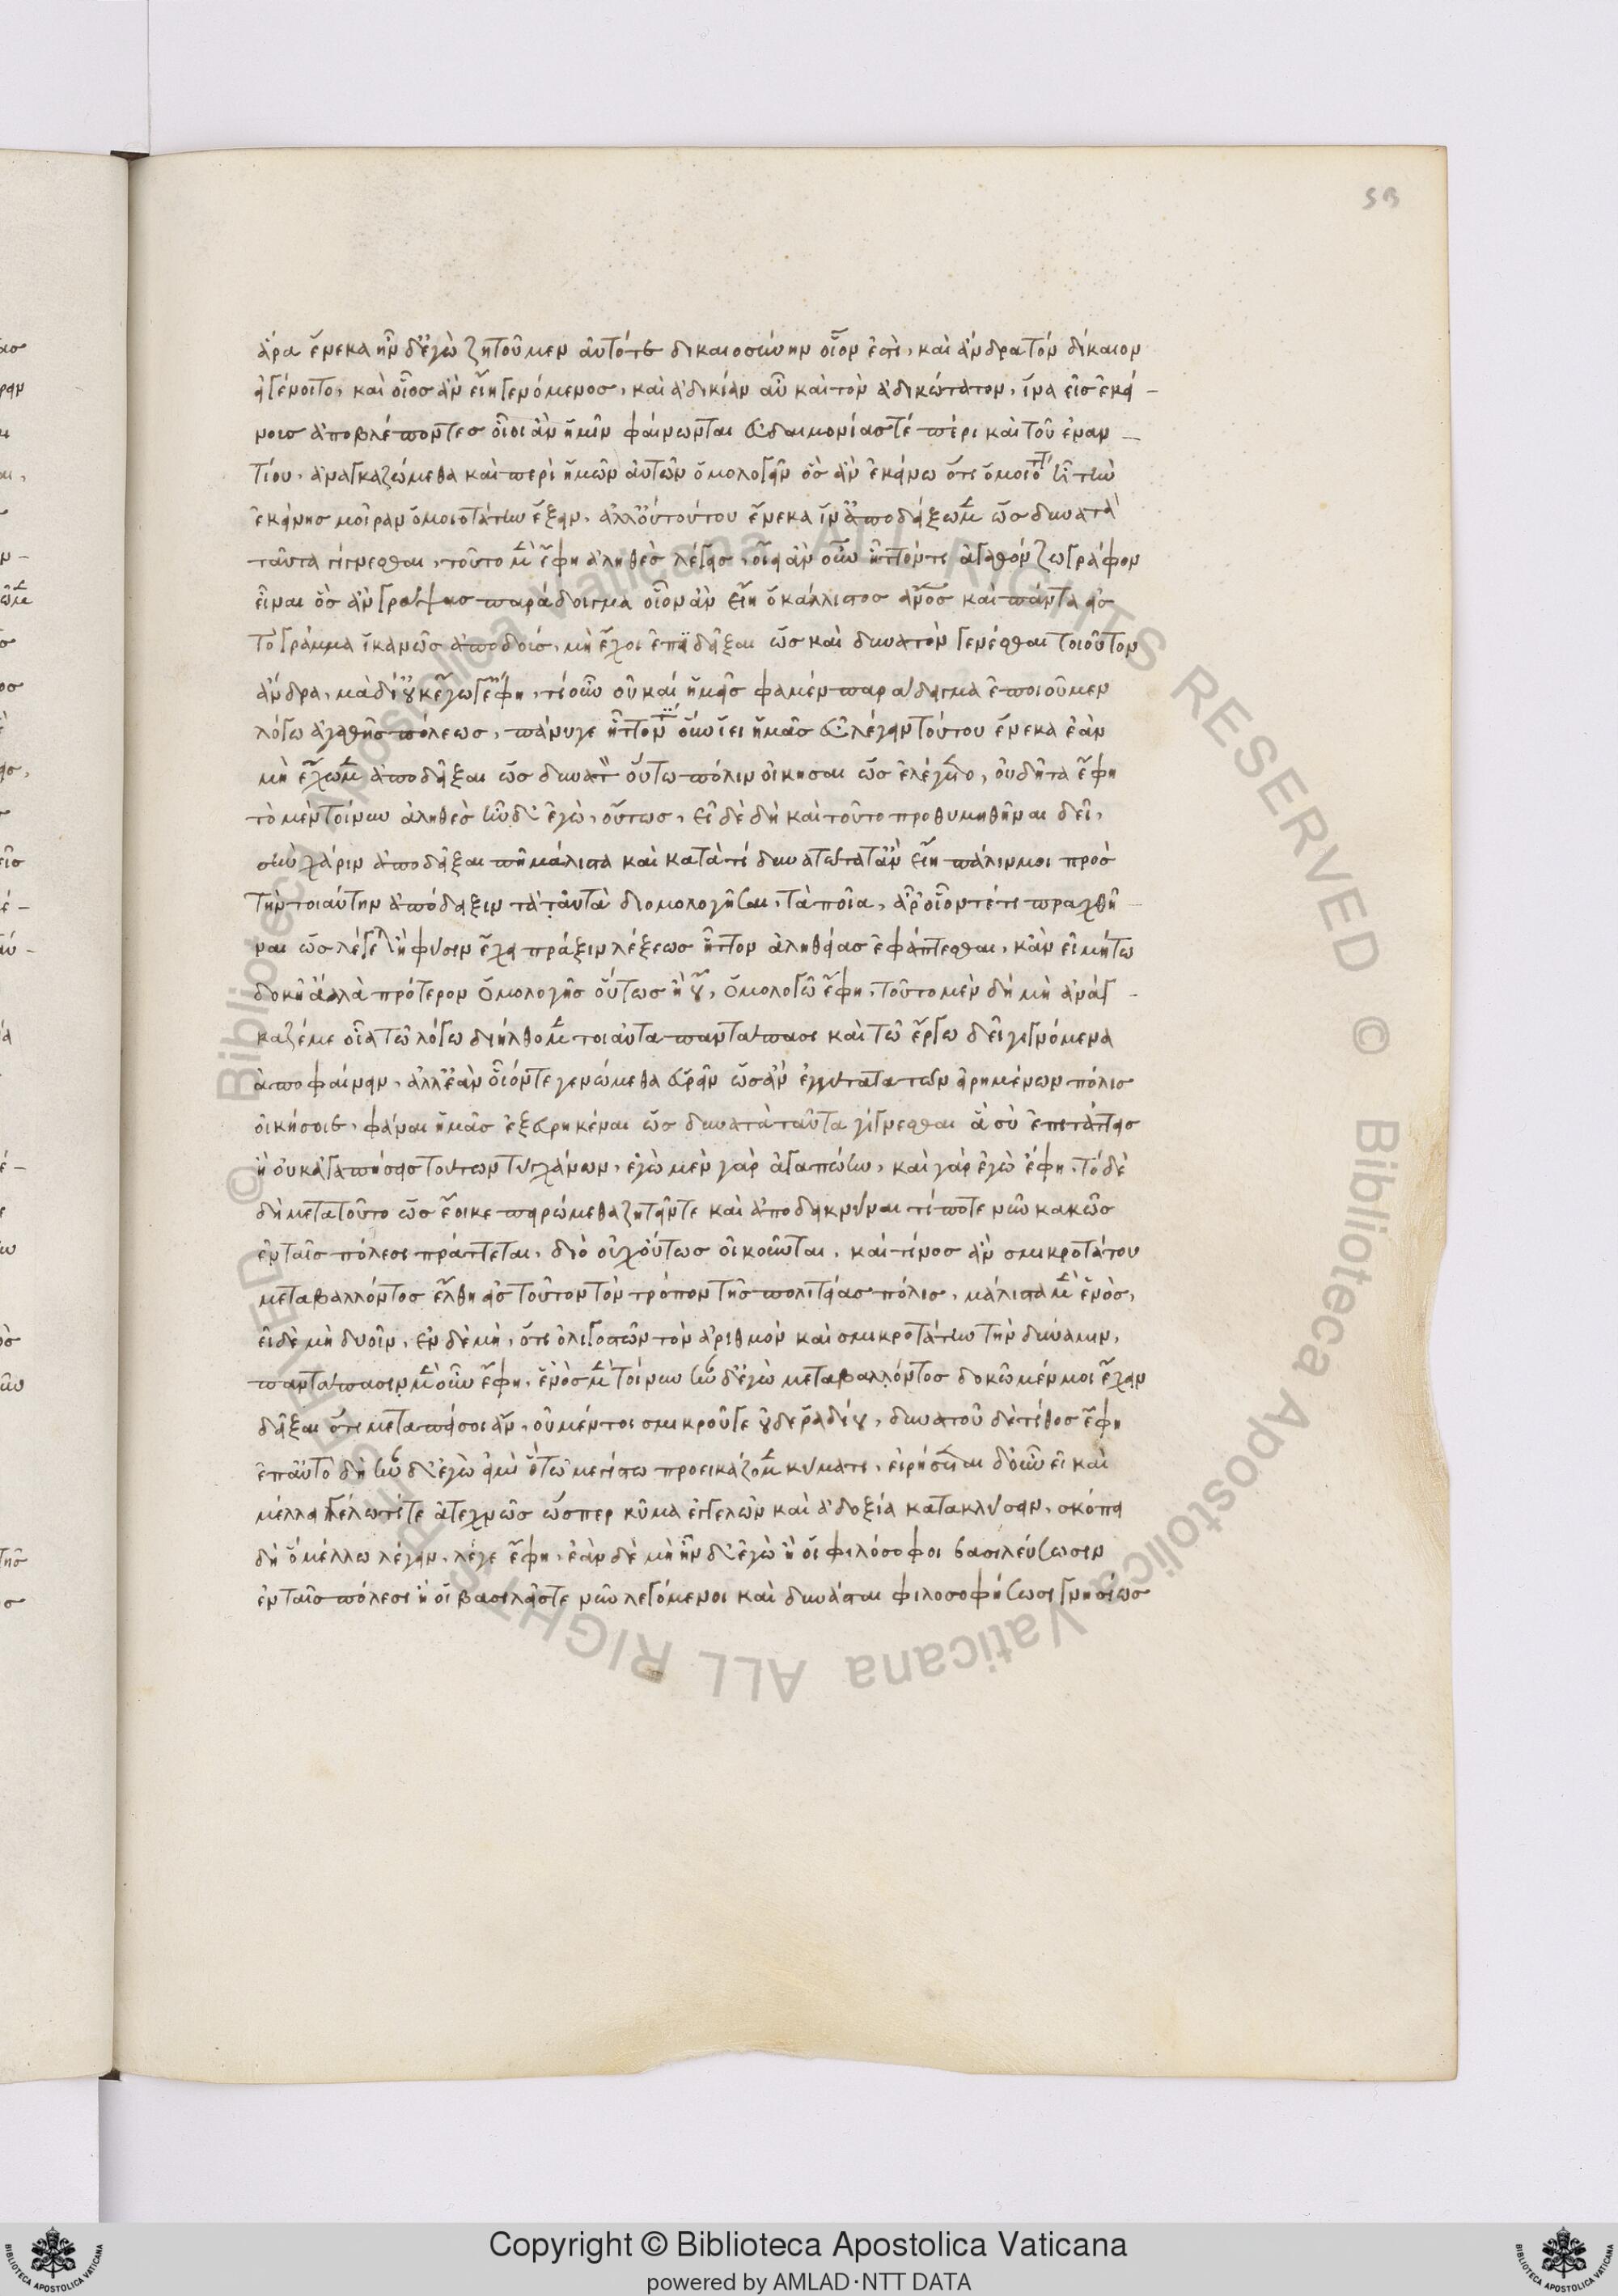 53
ἄρα ἕνεκα ἦν δ' ἐγὼ ζητοῦμεν αὐτότε δικαιοσύνην οἷον ἐστὶ, καὶ ἄνδρα τὸν δίκαιον
εἰ γένοιτο, καὶ οἷος ἂν εἴη γενόμενος, καὶ ἀδικίαν αὖ καὶ τὸν ἀδικώτατον, ἵνα εἰς ἐκεί-
νους ἀποβλέποντες οἷοι ἂν ἡμῖν φαίνωνται εὐδαιμονίας τέ πέρι καὶ τοῦ ἐναν-
τίου, ἀναγκαζώμεθα καὶ περὶ ἡμῶν αὐτῶν ὁμολογεῖν ὃς ἂν ἐκείνω ὅτι ὁμοιότ ἦ τὴν
ἐκείνης μοῖραν ὁμοιοτάτην ἕξειν, ἀλλ' οὐ τούτου ἕνεκα ἵν' ἀποδείξωμεν ὡς δυνατὰ
ταῦτα γίγνεσθαι, τοῦτο μὲν ἔφη ἀληθὲς λέγεις, οἴει ἂν οὖν ἧττόν τι ἀγαθὸν ζωγράφον
εἶναι ὃς ἂν γράψας παράδειγμα οἷον ἂν εἴη ὁ κάλλιστος ἄνος καὶ πάντα εἰς
τὸ γράμμα ἱκανῶς ἀποδοὺς, μὴ ἔχοι ἐπιδεῖξαι ὡς καὶ δυνατὸν γενέσθαι τοιοῦτον
ἄνδρα, μὰ δί' οὐκ ἔγωγ' ἔφη, τί οὖν οὐ καὶ ἡμεῖς φαμὲν παράδειγμα ἐποιοῦμεν
λόγω ἀγαθῆς πόλεως, πάνυγε ἧττόν τι οὖν οἴει ἡμᾶς εὖ λέγειν τούτου ἕνεκα ἐὰν
μὴ ἔχωμεν ἀποδεῖξαι ὡς δυνατὸν οὕτω πόλιν οἰκῆσαι ὡς ἐλέγετο, οὐ δῆτα ἔφη
τὸ μὲν τοίνυν ἀληθὲς ἦν δ' ἐγὼ, οὕτως, εἰ δὲ δὴ καὶ τοῦτο προθυμηθῆναι δεῖ,
σὴν χάριν ἀποδεῖξαι πῆ μάλιστα καὶ κατὰ τί δυνατώτατ' ἂν εἴη πάλιν μοι πρὸς
τὴν τοιαύτην ἀπόδειξιν τὰ ταυτὰ διομολόγησαι, τὰ ποῖα, ἆρ' οἷόν τέ τι πραχθῆ-
ναι ὡς λέγεται ἢ φύσιν ἔχει πρᾶξιν λέξεως ἧττον ἀληθείας ἐφάπτεσθαι, κἂν εἰ μή τω
δοκῆ ἀλλὰ πρότερον ὁμολογῆς οὕτως ἢ οὔ, ὁμολογῶ ἔφη, τοῦτο μὲν δὴ μὴ ἀνάγ-
καζέ με οἷα τῶ λόγω διήλθομεν τοιαῦτα παντάπασι καὶ τῶ ἔργω δεῖ γιγνόμενα
ἀποφαίνειν, ἀλλ' ἐὰν οἷόντε γενώμεθα εὑρεῖν ὡς ἂν ἐγγύτατα τῶν εἰρημένων πόλις
οἰκήσειε, φάναι ἡμᾶς ἐξευρηκέναι ὡς δυνατὰ ταῦτα γίγνεσθαι ἃ σὺ ἐπιτάττεις
ἢ οὐκ ἀγαπήσεις τούτων τυγχάνων, ἐγὼ μὲν γὰρ ἀγαπώην, καὶ γὰρ ἐγὼ ἔφη, τὸ δὲ
δὴ μετα τοῦτο ὡς ἔοικε πειρώμεθα ζητεῖν τε καὶ ἀποδεικνύναι τί ποτε νῦν κακῶς
ἐν ταῖς πόλεσι πράττεται, διὸ οὐχ οὕτως οἰκοῦνται, καὶ τίνος ἂν σμικροτάτου
μεταβαλλόντος ἔλθη εἰς τοῦτον τὸν τρόπον τῆς πολιτείας πόλις, μάλιστα μὲν ἑνὸς,
εἰ δὲ μὴ δυοῖν, εἰ δὲ μὴ, ὅτι ὀλιγοστῶν τὸν ἀριθμὸν καὶ σμικροτάτων τὴν δύναμιν,
παντάπασιν μὲν οὖν ἔφη, ἑνὸς μὲν τοίνυν ἦν δ' ἐγὼ μεταβαλλόντος δοκῶ μέν μοι ἔχειν
δεῖξαι ὅτι μεταπέσοι ἂν, οὐ μέντοι σμικροῦ γε οὐδὲ ῥαδίου, δυνατοῦ δὲ τίθος ἔφη
ἐπ' αὐτὸ δὴ ἦν δ' ἐγὼ εἰμὶ ὅτω μεγίστω προεικάζομεν κύματι, εἰρήσεται δ' οὖν εἰ καὶ
μέλλει γέλωτί τε ἀτεχνῶς ὥσπερ κῦμα ἐκγελῶν καὶ ἀδοξία κατακλύσειν, σκόπει
δὴ ὃ μέλλω λέγειν, λέγε ἔφη, ἐὰν δὲ μὴ ἦν δ' ἐγὼ ἢ οἱ φιλόσοφοι βασιλεύσωσιν
ἐν ταῖς πόλεσι ἢ οἱ βασιλεῖς τε νῦν λεγόμενοι καὶ δυνάσται φιλοσοφήσωσι γνησίως
© Biblioteca Apostolica Vaticana ALL RIGHTS RESERVED
Copyright © Biblioteca Apostolica Vaticana
powered by AMLAD·NTT DATA